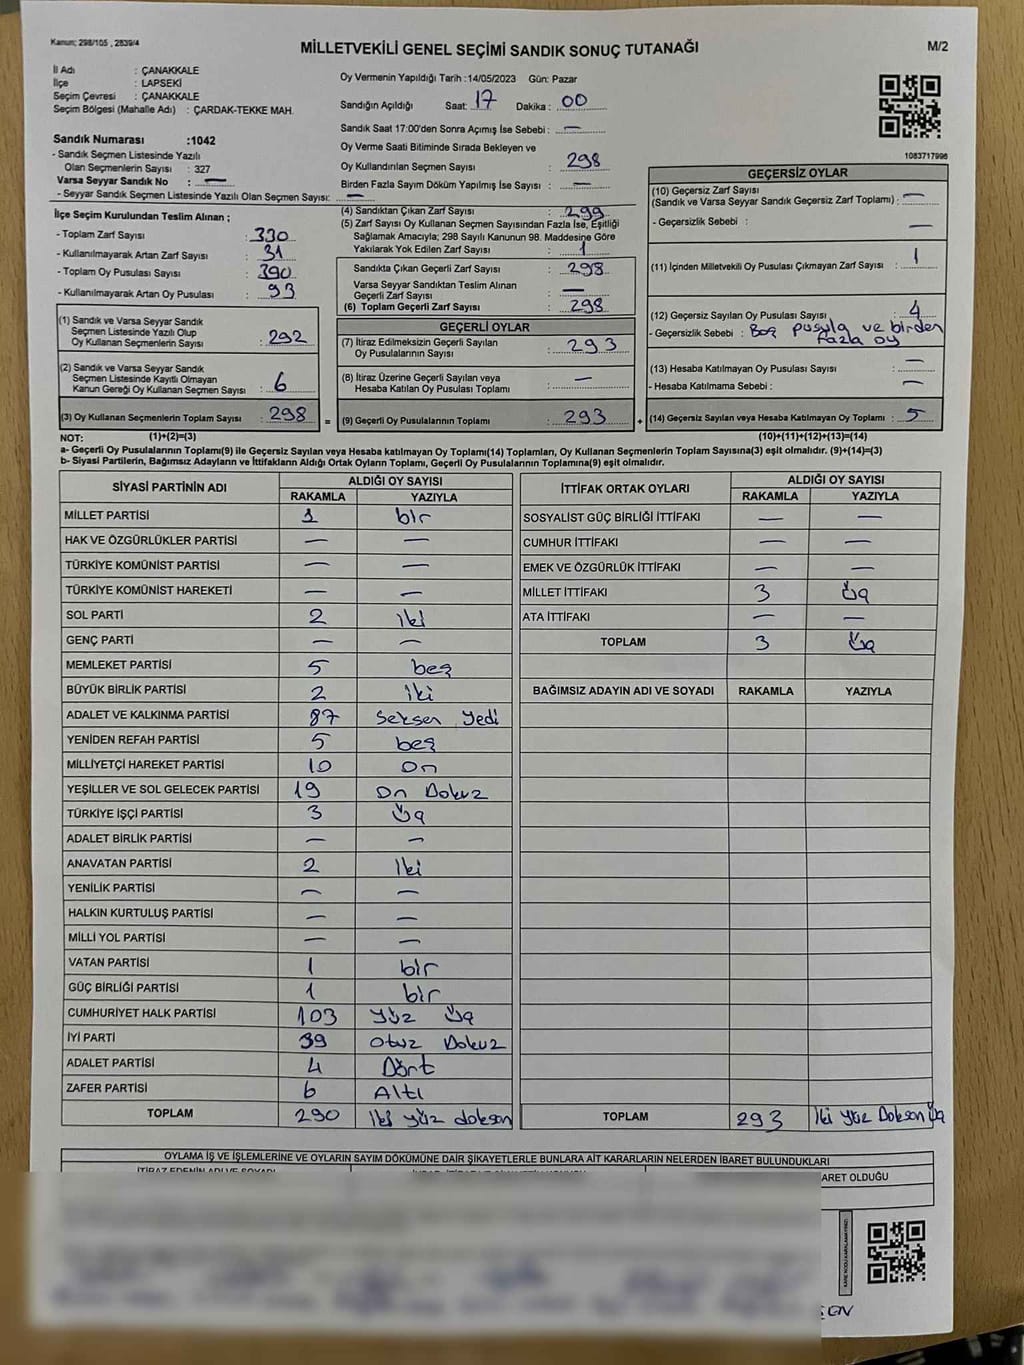 Kanun; 298/105 , 2839/4
MİLLETVEKİLİ GENEL SEÇİMİ SANDIK SONUÇ TUTANAĞI
M/2
İl Adı : ÇANAKKALE
İlçe : LAPSEKİ
Seçim Çevresi : ÇANAKKALE
Seçim Bölgesi (Mahalle Adı) : ÇARDAK-TEKKE MAH.
Sandık Numarası :1042
- Sandık Seçmen Listesinde Yazılı
Olan Seçmenlerin Sayısı : 327
Varsa Seyyar Sandık No : —
- Seyyar Sandık Seçmen Listesinde Yazılı Olan Seçmen Sayısı: —
Oy Vermenin Yapıldığı Tarih :14/05/2023 Gün: Pazar
Sandığın Açıldığı Saat: 17 Dakika : 00
Sandık Saat 17:00'den Sonra Açımış İse Sebebi : —
Oy Verme Saati Bitiminde Sırada Bekleyen ve
Oy Kullandırılan Seçmen Sayısı : 298
Birden Fazla Sayım Döküm Yapılmış İse Sayısı : —
1083717996
İlçe Seçim Kurulundan Teslim Alınan ;
- Toplam Zarf Sayısı : 330
- Kullanılmayarak Artan Zarf Sayısı : 31
- Toplam Oy Pusulası Sayısı : 390
- Kullanılmayarak Artan Oy Pusulası : 93
(1) Sandık ve Varsa Seyyar Sandık
Seçmen Listesinde Yazılı Olup
Oy Kullanan Seçmenlerin Sayısı : 292
(2) Sandık ve Varsa Seyyar Sandık
Seçmen Listesinde Kayıtlı Olmayan
Kanun Gereği Oy Kullanan Seçmen Sayısı : 6
(3) Oy Kullanan Seçmenlerin Toplam Sayısı : 298 =
(4) Sandıktan Çıkan Zarf Sayısı : 299
(5) Zarf Sayısı Oy Kullanan Seçmen Sayısından Fazla İse, Eşitliği
Sağlamak Amacıyla; 298 Sayılı Kanunun 98. Maddesine Göre
Yakılarak Yok Edilen Zarf Sayısı : 1
Sandıkta Çıkan Geçerli Zarf Sayısı : 298
Varsa Seyyar Sandıktan Teslim Alınan
Geçerli Zarf Sayısı : —
(6) Toplam Geçerli Zarf Sayısı : 298
GEÇERLİ OYLAR
(7) İtiraz Edilmeksizin Geçerli Sayılan
Oy Pusulalarının Sayısı : 293
(8) İtiraz Üzerine Geçerli Sayılan veya
Hesaba Katılan Oy Pusulası Toplamı : —
(9) Geçerli Oy Pusulalarının Toplamı : 293 +
GEÇERSİZ OYLAR
(10) Geçersiz Zarf Sayısı
(Sandık ve Varsa Seyyar Sandık Geçersiz Zarf Toplamı) : —
- Geçersizlik Sebebi : —
(11) İçinden Milletvekili Oy Pusulası Çıkmayan Zarf Sayısı : 1
(12) Geçersiz Sayılan Oy Pusulası Sayısı : 4
- Geçersizlik Sebebi : Boş pusula ve birden
fazla oy
(13) Hesaba Katılmayan Oy Sayısı : —
- Hesaba Katılmama Sebebi : —
(14) Geçersiz Sayılan veya Hesaba Katılmayan Oy Toplamı : 5
NOT: (1)+(2)=(3) (10)+(11)+(12)+(13)=(14)
a- Geçerli Oy Pusulalarının Toplamı(9) ile Geçersiz Sayılan veya Hesaba katılmayan Oy Toplamı(14) Toplamları, Oy Kullanan Seçmenlerin Toplam Sayısına(3) eşit olmalıdır. (9)+(14)=(3)
b- Siyasi Partilerin, Bağımsız Adayların ve İttifakların Aldığı Ortak Oyların Toplamı, Geçerli Oy Pusulalarının Toplamına(9) eşit olmalıdır.
SİYASİ PARTİNİN ADI ALDIĞI OY SAYISI
RAKAMLA YAZIYLA
MİLLET PARTİSİ 1 bir
HAK VE ÖZGÜRLÜKLER PARTİSİ — —
TÜRKİYE KOMÜNİST PARTİSİ — —
TÜRKİYE KOMÜNİST HAREKETİ — —
SOL PARTİ 2 iki
GENÇ PARTİ — —
MEMLEKET PARTİSİ 5 beş
BÜYÜK BİRLİK PARTİSİ 2 iki
ADALET VE KALKINMA PARTİSİ 87 Seksen Yedi
YENİDEN REFAH PARTİSİ 5 beş
MİLLİYETÇİ HAREKET PARTİSİ 10 On
YEŞİLLER VE SOL GELECEK PARTİSİ 19 On Dokuz
TÜRKİYE İŞÇİ PARTİSİ 3 Üç
ADALET BİRLİK PARTİSİ — —
ANAVATAN PARTİSİ 2 İki
YENİLİK PARTİSİ — —
HALKIN KURTULUŞ PARTİSİ — —
MİLLİ YOL PARTİSİ — —
VATAN PARTİSİ 1 bir
GÜÇ BİRLİĞİ PARTİSİ 1 bir
CUMHURİYET HALK PARTİSİ 103 Yüz Üç
İYİ PARTİ 39 Otuz Dokuz
ADALET PARTİSİ 4 Dört
ZAFER PARTİSİ 6 Altı
TOPLAM 290 İki yüz doksan
İTTİFAK ORTAK OYLARI ALDIĞI OY SAYISI
RAKAMLA YAZIYLA
SOSYALİST GÜÇ BİRLİĞİ İTTİFAKI — —
CUMHUR İTTİFAKI — —
EMEK VE ÖZGÜRLÜK İTTİFAKI — —
MİLLET İTTİFAKI 3 Üç
ATA İTTİFAKI — —
TOPLAM 3 Üç
BAĞIMSIZ ADAYIN ADI VE SOYADI RAKAMLA YAZIYLA
TOPLAM 293 İki Yüz Doksan Üç
OYLAMA İŞ VE İŞLEMLERİNE VE OYLARIN SAYIM DÖKÜMÜNE DAİR ŞİKAYETLERLE BUNLARA AİT KARARLARIN NELERDEN İBARET BULUNDUKLARI
İTİRAZ EDENİN ADI VE SOYADI
ARET OLDUĞU
KARE KODU KARALAMAYINIZ!